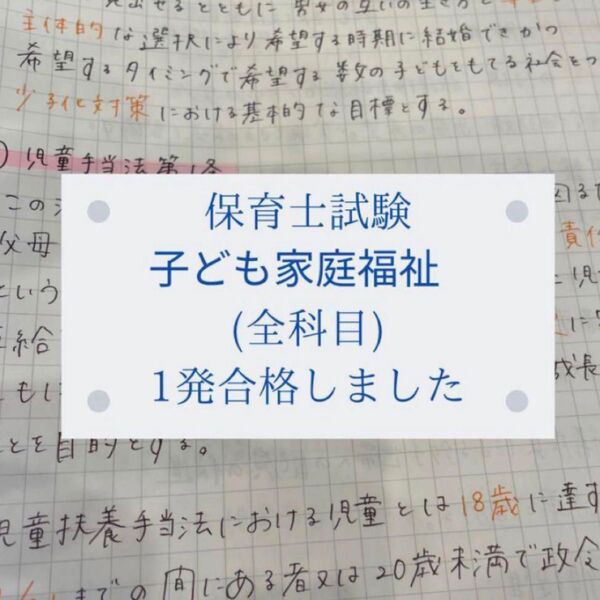 主体的な選択により希望する時期に結婚でき かつ
希望するタイミングで希望する数の子どもをもてる社会を
少子化対策における基本的な目標とする。
児童手当法第1条
この
父母
責任
という
保育士試験
子ども家庭福祉
(全科目)
1発合格しました
給
成長
ことを目的とする。
児童扶養手当法における児童とは18歳に達す
までの間にある者又は20歳未満で政令